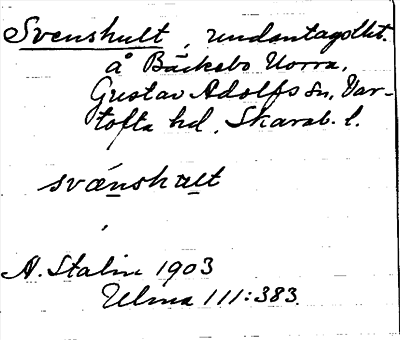 Svenshult, undantagslht.
å Bäckebo Norra,
Gustav Adolfs sn, Var-
tofta hd, Skarab. l.
svænshult
A. Stalin 1903
Ulma 111:383.